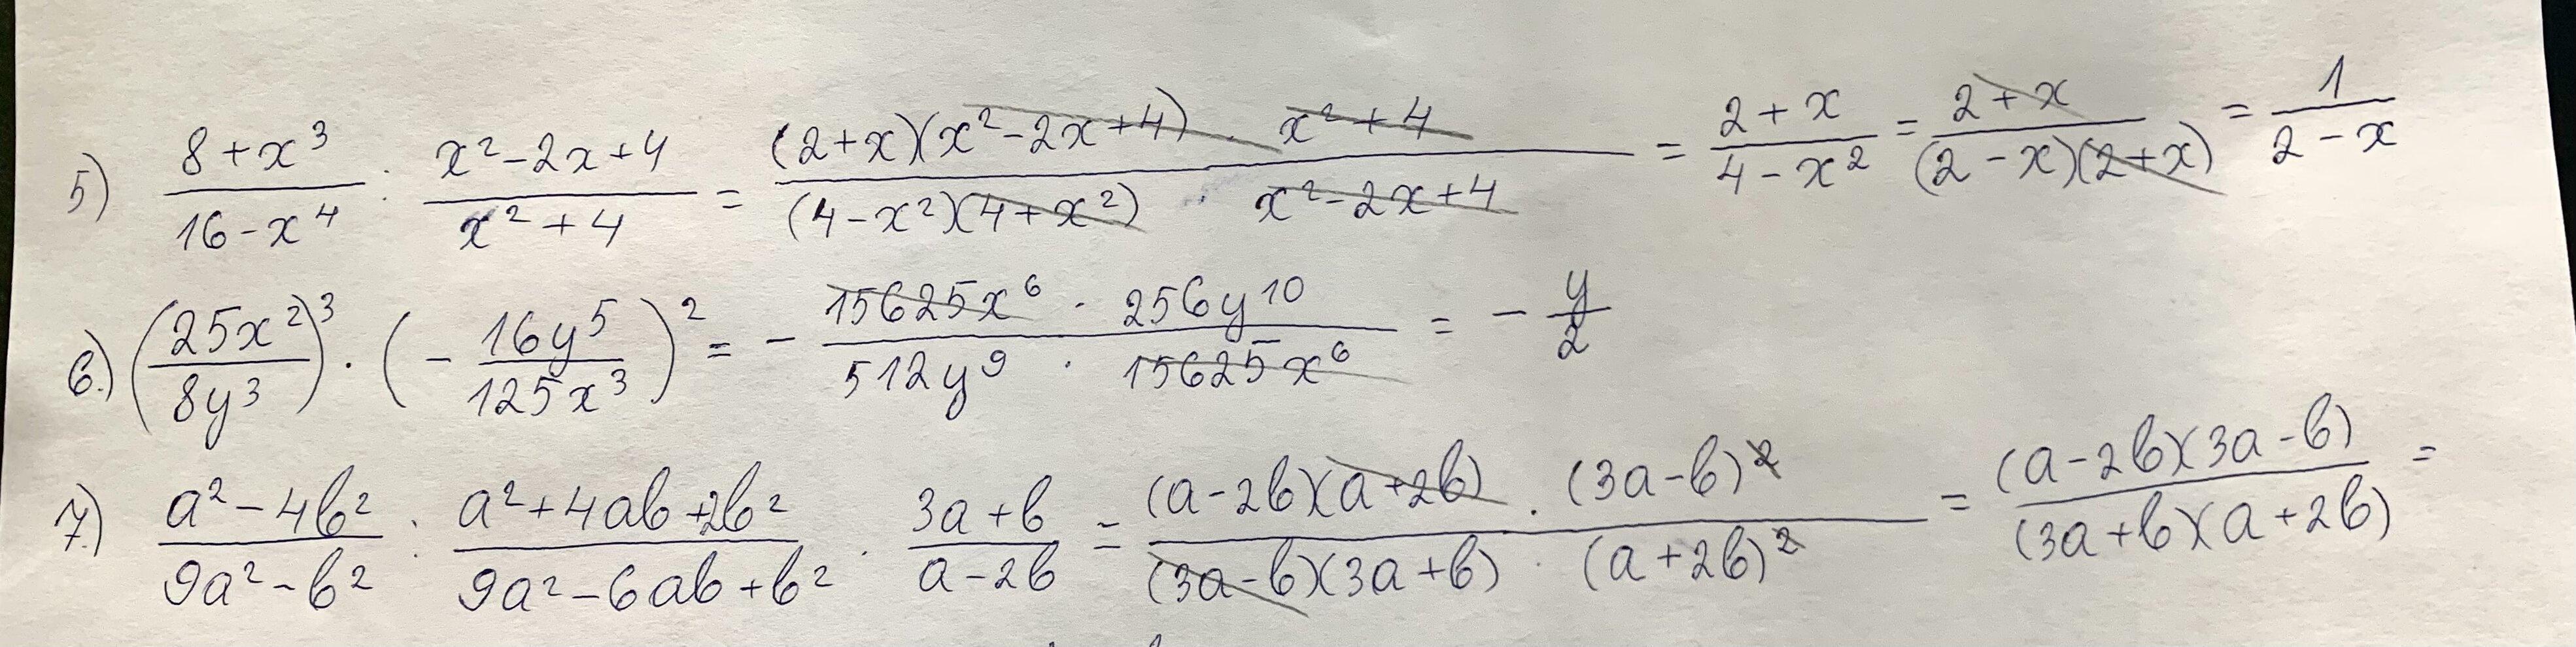 5) (8+x³)/(16-x⁴) : (x²-2x+4)/(x²+4) = ((2+x)(x²-2x+4) · x²+4)/((4-x²)(4+x²) · x²-2x+4) = (2+x)/(4-x²) = (2+x)/((2-x)(2+x)) = 1/(2-x)
6.) (25x²/8y³)³ · (-16y⁵/125x³)² = - (15625x⁶ · 256y¹⁰)/(512y⁹ · 15625x⁶) = - y/2
7.) (a²-4b²)/(9a²-b²) : (a²+4ab+2b²)/(9a²-6ab+b²) · (3a+b)/(a-2b) = ((a-2b)(a+2b) · (3a-b)²)/((3a-b)(3a+b) · (a+2b)²) = ((a-2b)(3a-b))/((3a+b)(a+2b)) =